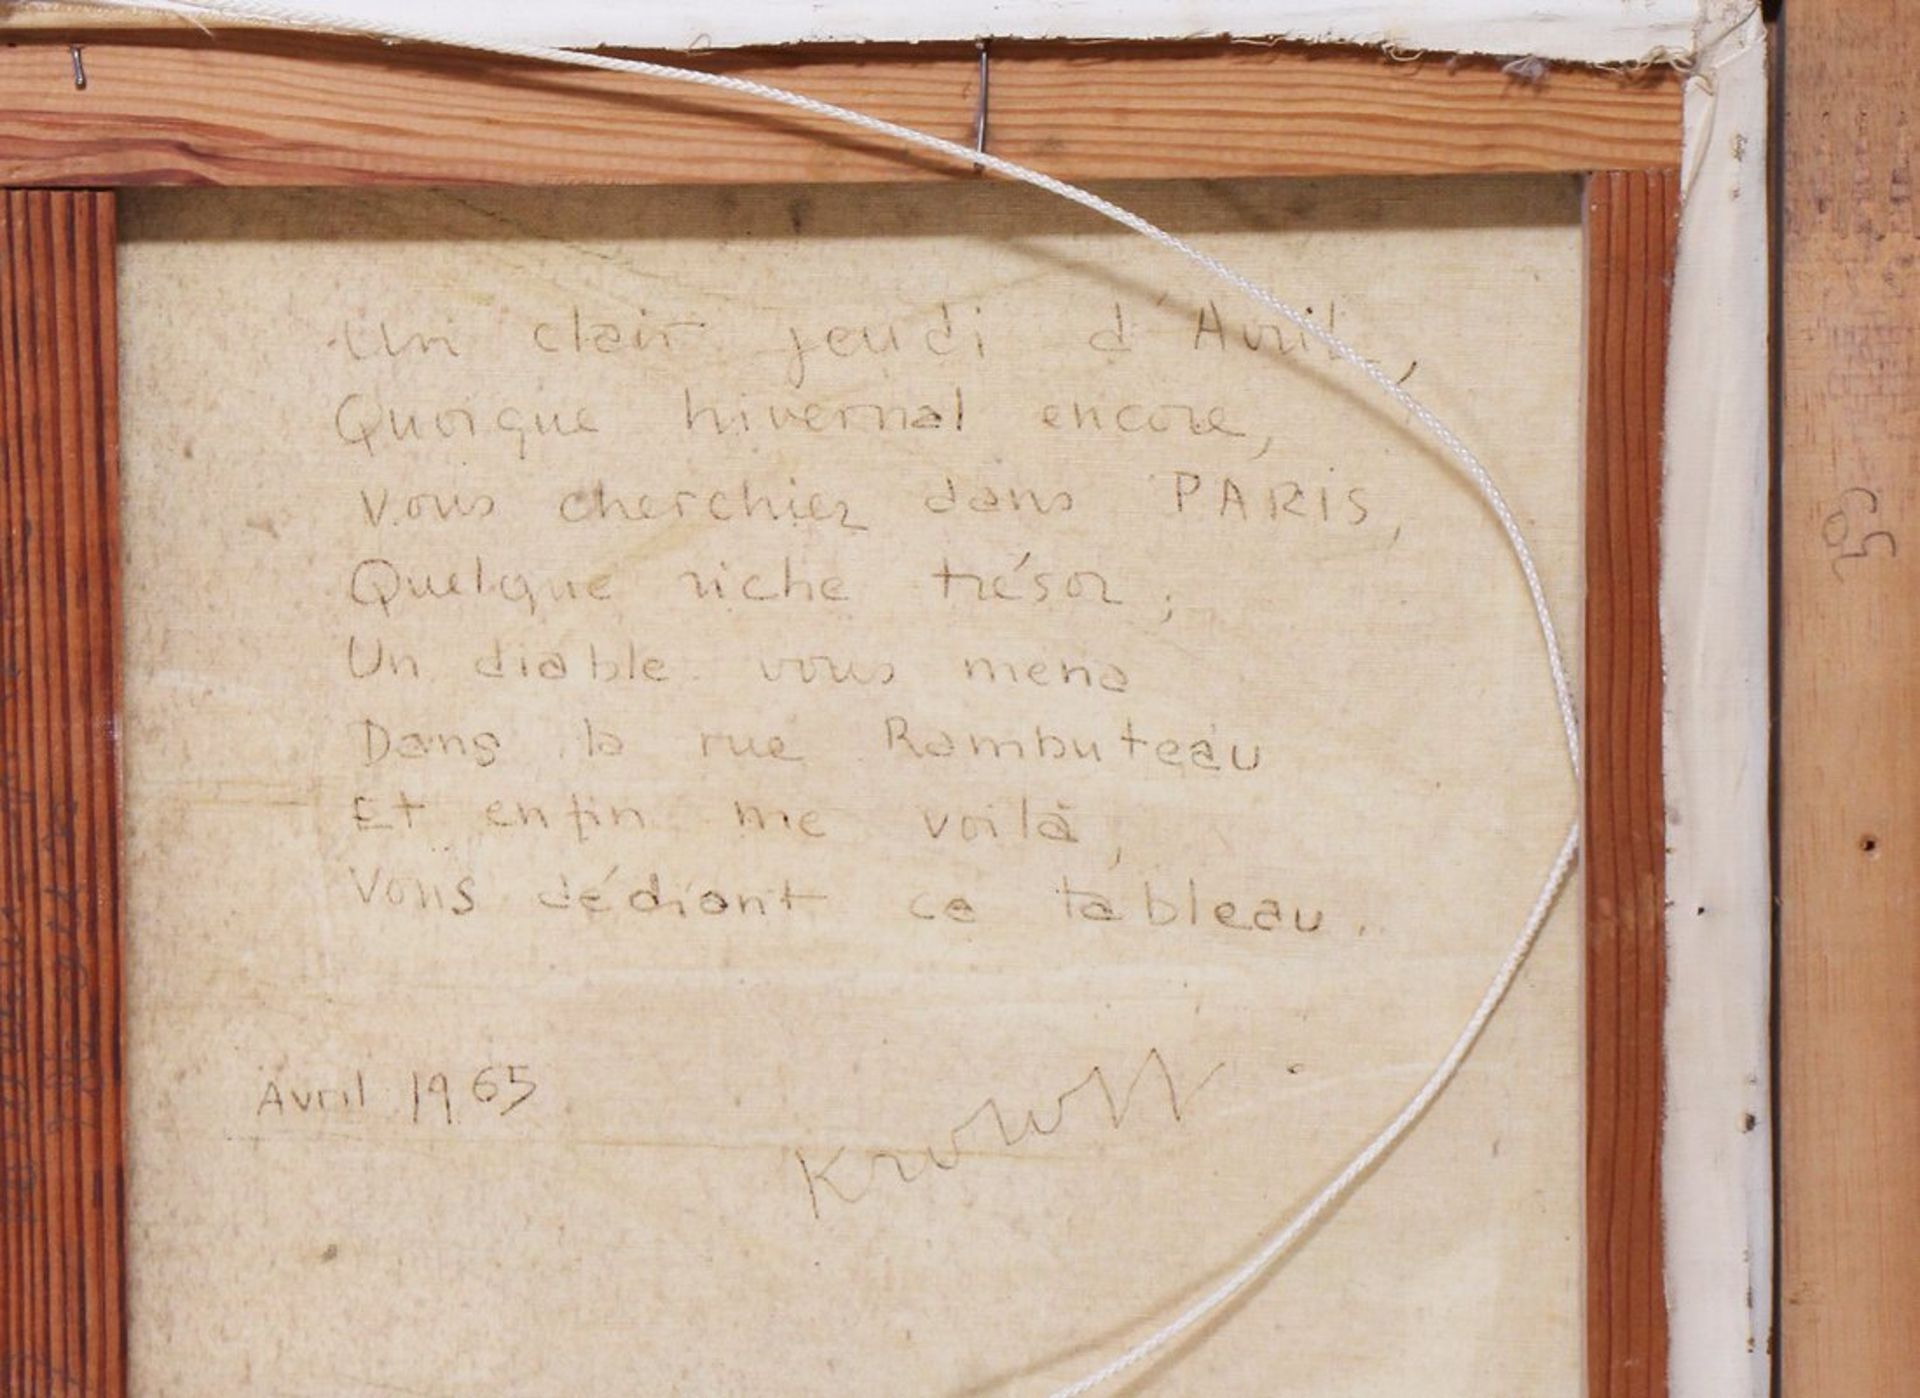 Un clair jeudi d'Avril,
Quoique hivernal encore,
Vous cherchiez dans PARIS,
Quelque riche trésor;
Un diable vous mena
Dans la rue Rambuteau
Et enfin me voilà,
Vous dédiant ce tableau.
Avril 1965